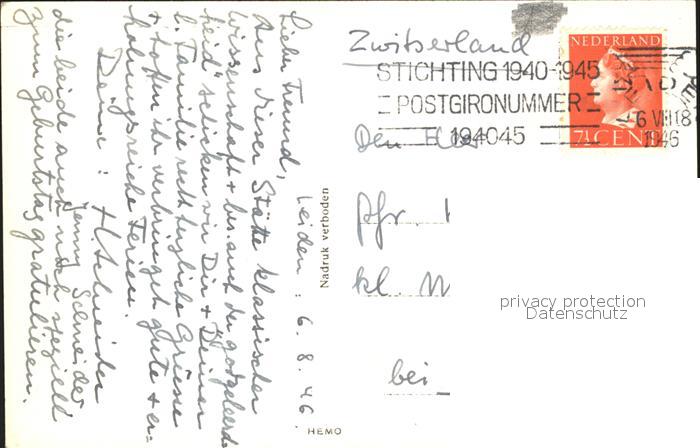 Leiden: 6. 8. 46.
Lieber Freund,
Aus dieser Stätte klassischer
Wissenschaft + bes. auch der "godgeleerd-
heid" schicken wir Dir + Deiner
l. Familie recht herzliche Grüsse
+ hoffen ihr verbringet gute + er-
holungsreiche Ferien.
Deine: H. Schneider
Jenny Schneider
die beide auch noch speziell
zum Geburtstag gratulieren.
Nadruk verboden
HEMO
Zwitserland
STICHTING 1940-1945
POSTGIRONUMMER
194045
6 VIII 18
1946
NEDERLAND
7½ CENT
Den Heer
Pfr.
kl.
bei
privacy protection
Datenschutz